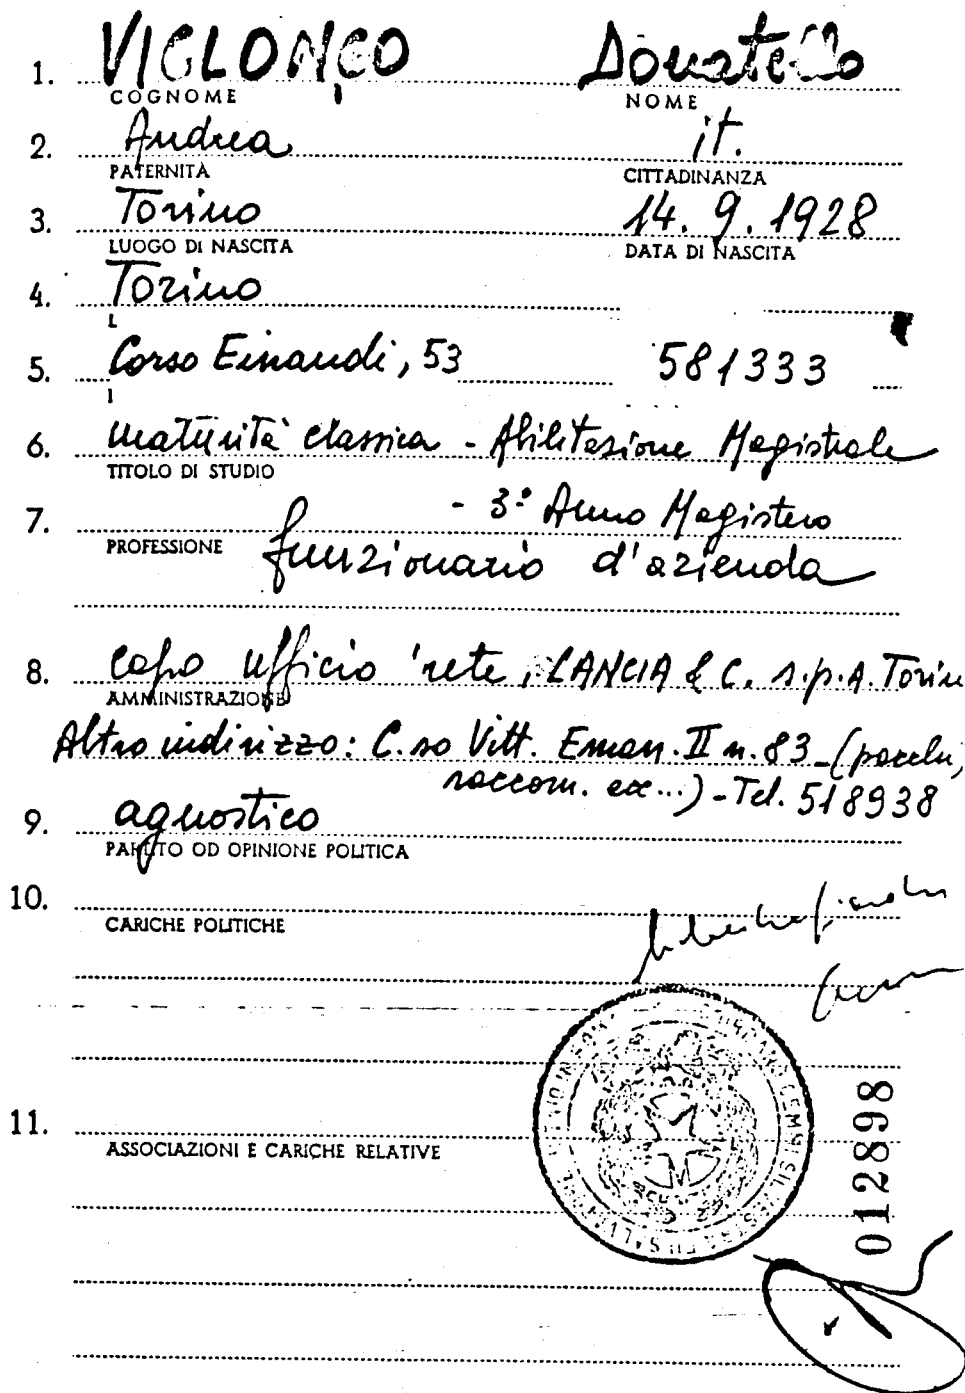 1. VIGLONGO Donatello
COGNOME NOME
2. Andrea it.
PATERNITÀ CITTADINANZA
3. Torino 14.9.1928
LUOGO DI NASCITA DATA DI NASCITA
4. Torino
5. Corso Einaudi, 53 581333
6. maturità classica - Abilitazione Magistrale
TITOLO DI STUDIO
7. - 3° Anno Magistero
PROFESSIONE funzionario d'azienda
8. Capo ufficio rete, LANCIA & C. s.p.A. Torino
AMMINISTRAZIONE
Altro indirizzo: C.so Vitt. Eman. II n. 83 - (pacchi,
raccom. ecc...) - Tel. 518938
9. agnostico
PARTITO OD OPINIONE POLITICA
10.
CARICHE POLITICHE
11.
ASSOCIAZIONI E CARICHE RELATIVE
012898